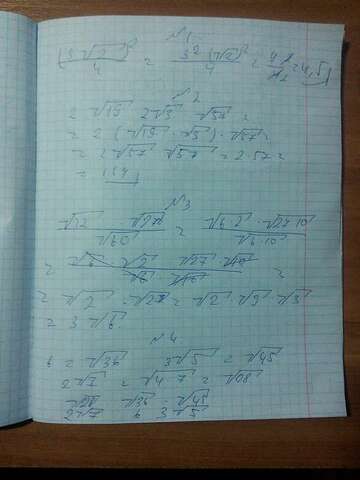 №1
(3√2)² / 4 = 3² (√2)² / 4 = 9·2 / 4 2 = 4,5
№2
2 √19 2√3 √57 =
= 2 (√19 · √3) · √57 =
= 2 √57 √57 = 2·57 =
= 114
№3
√12 √270 / √60 = √6·2 · √27·10 / √6·10
= √6 √2 √27 · √10 / √6 √10 =
= √2 · √27 = √2 · √9 · √3
= 3 √6
№4
6 = √36 3√5 = √45
2√7 = √4 7 = √28
√28 √36 √45
2√7 6 3√5